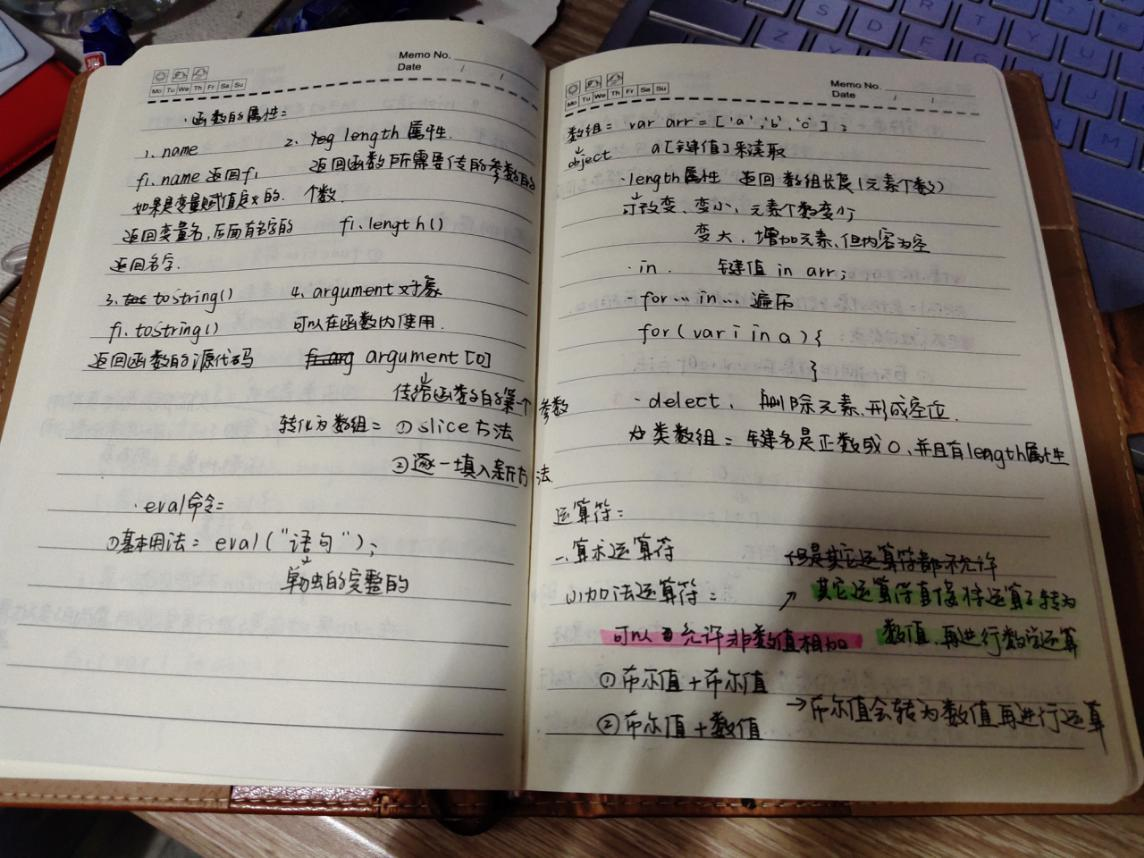 Memo No.
Date / /
Mo Tu We Th Fr Sa Su
·函数的属性:
1. name
f1.name 返回f1
如果是变量赋值定义的.
返回变量名,后面有名字的
返回名字.
2. length 属性.
返回函数所需要传的参数的
个数.
f1.length()
3. tostring()
f1.tostring()
返回函数的源代码
4. argument 对象
可以在函数内使用.
argument[0]
传给函数的第一个参数
转化为数组: ①slice方法
②逐一填入新方法
·eval命令:
①基本用法: eval("语句");
单独的完整的
Memo No.
Date / /
Mo Tu We Th Fr Sa Su
数组: var arr = ['a','b','c'];
object a[键值]来读取
·length属性 返回数组长度(元素个数)
可改变、变小、元素个数变少
变大、增加元素、但内容为空
·in. 键值 in arr;
·for…in… 遍历
for(var i in a){
}
·delect、删除元素、形成空位.
类数组: 键名是正数或0、并且有length属性
运算符:
一、算术运算符
(1)加法运算符:
可以 允许非数值相加
但是其它运算符都不允许
↗ 其它运算符直接将运算子转为
数值、再进行数学运算
①布尔值+布尔值
②布尔值+数值
→布尔值会转为数值再进行运算